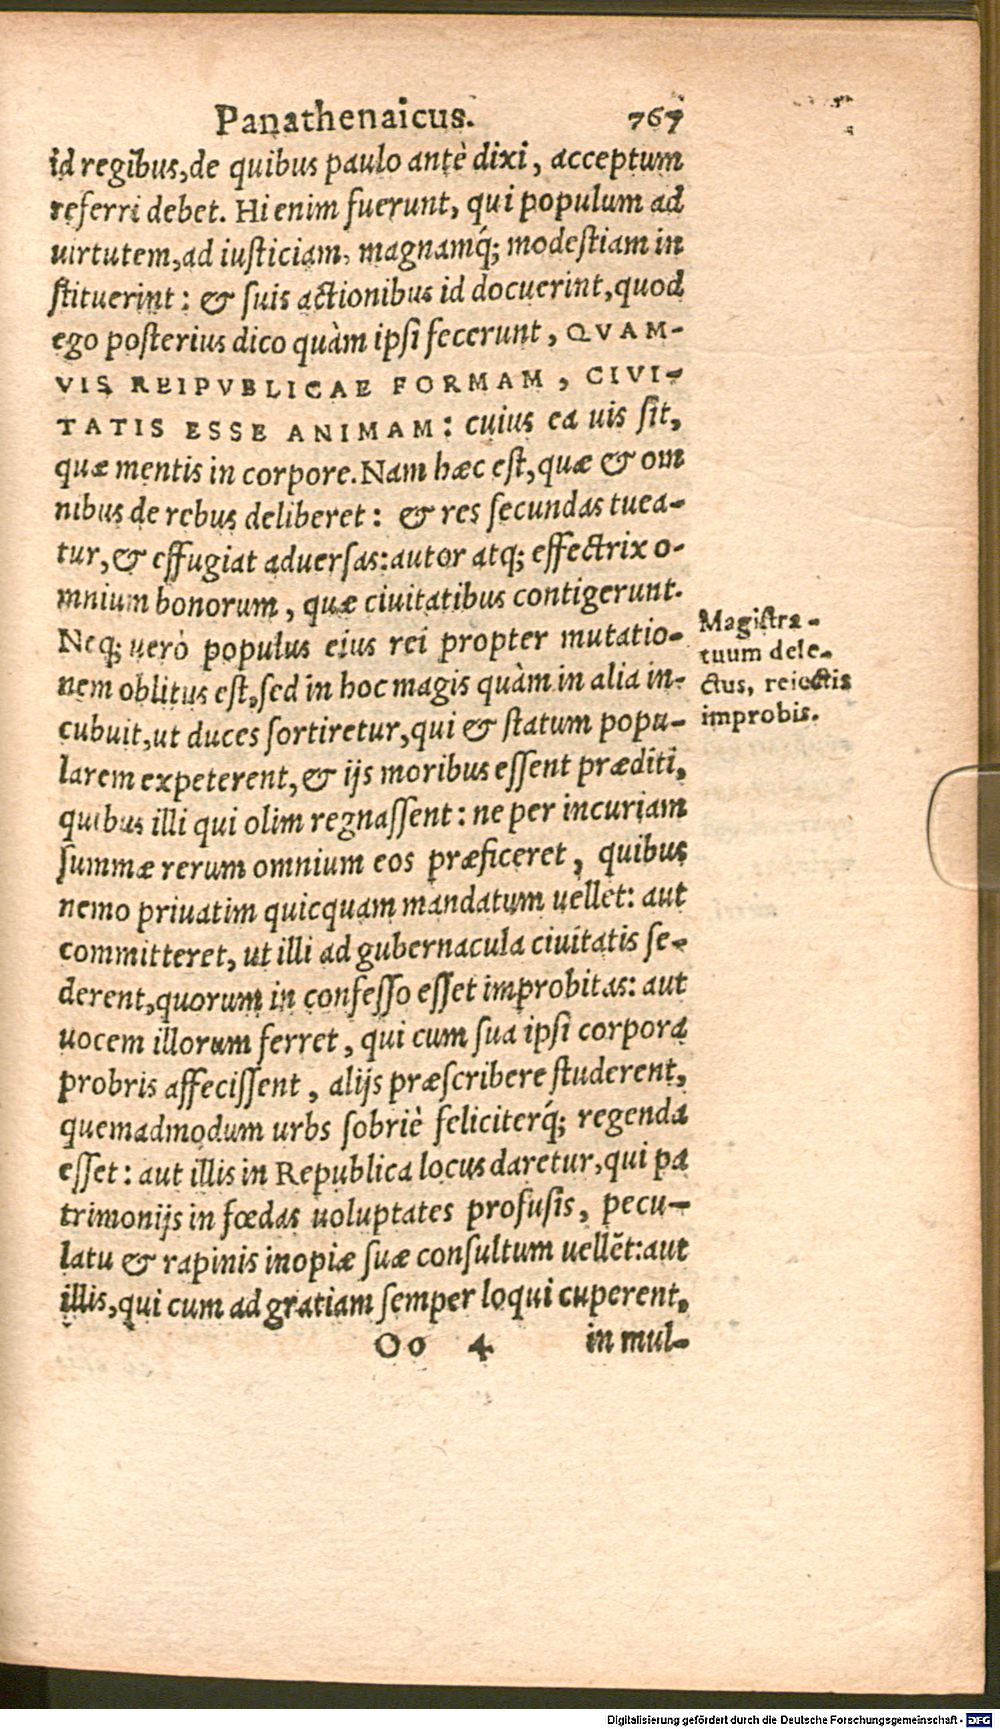 Panathenaicus. 767
id regibus, de quibus paulo antè dixi, acceptum
referri debet. Hi enim fuerunt, qui populum ad
uirtutem, ad iusticiam, magnamq́; modestiam in
stituerint: & suis actionibus id docuerint, quod
ego posterius dico quàm ipsi fecerunt, QVAM-
VIS REIPVBLICAE FORMAM, CIVI-
TATIS ESSE ANIMAM: cuius ea uis sit,
quæ mentis in corpore. Nam hæc est, quæ & om
nibus de rebus deliberet: & res secundas tuea-
tur, & effugiat aduersas: autor atq; effectrix o-
mnium bonorum, quæ ciuitatibus contigerunt.
Neq; uerò populus eius rei propter mutatio-
nem oblitus est, sed in hoc magis quàm in alia in-
cubuit, ut duces sortiretur, qui & statum popu-
larem expeterent, & ijs moribus essent præditi,
quibus illi qui olim regnassent: ne per incuriam
summæ rerum omnium eos præficeret, quibus
nemo priuatim quicquam mandatum uellet: aut
committeret, ut illi ad gubernacula ciuitatis se-
derent, quorum in confesso esset improbitas: aut
uocem illorum ferret, qui cum sua ipsi corpora
probris affecissent, alijs præscribere studerent,
quemadmodum urbs sobriè feliciterq́; regenda
esset: aut illis in Republica locus daretur, qui pa
trimonijs in fœdas uoluptates profusis, pecu-
latu & rapinis inopiæ suæ consultum uellēt: aut
illis, qui cum ad gratiam semper loqui cuperent,
Oo 4 in mul-
Magistra-
tuum dele-
ctus, reiectis
improbis.
Digitalisierung gefördert durch die Deutsche Forschungsgemeinschaft - DFG